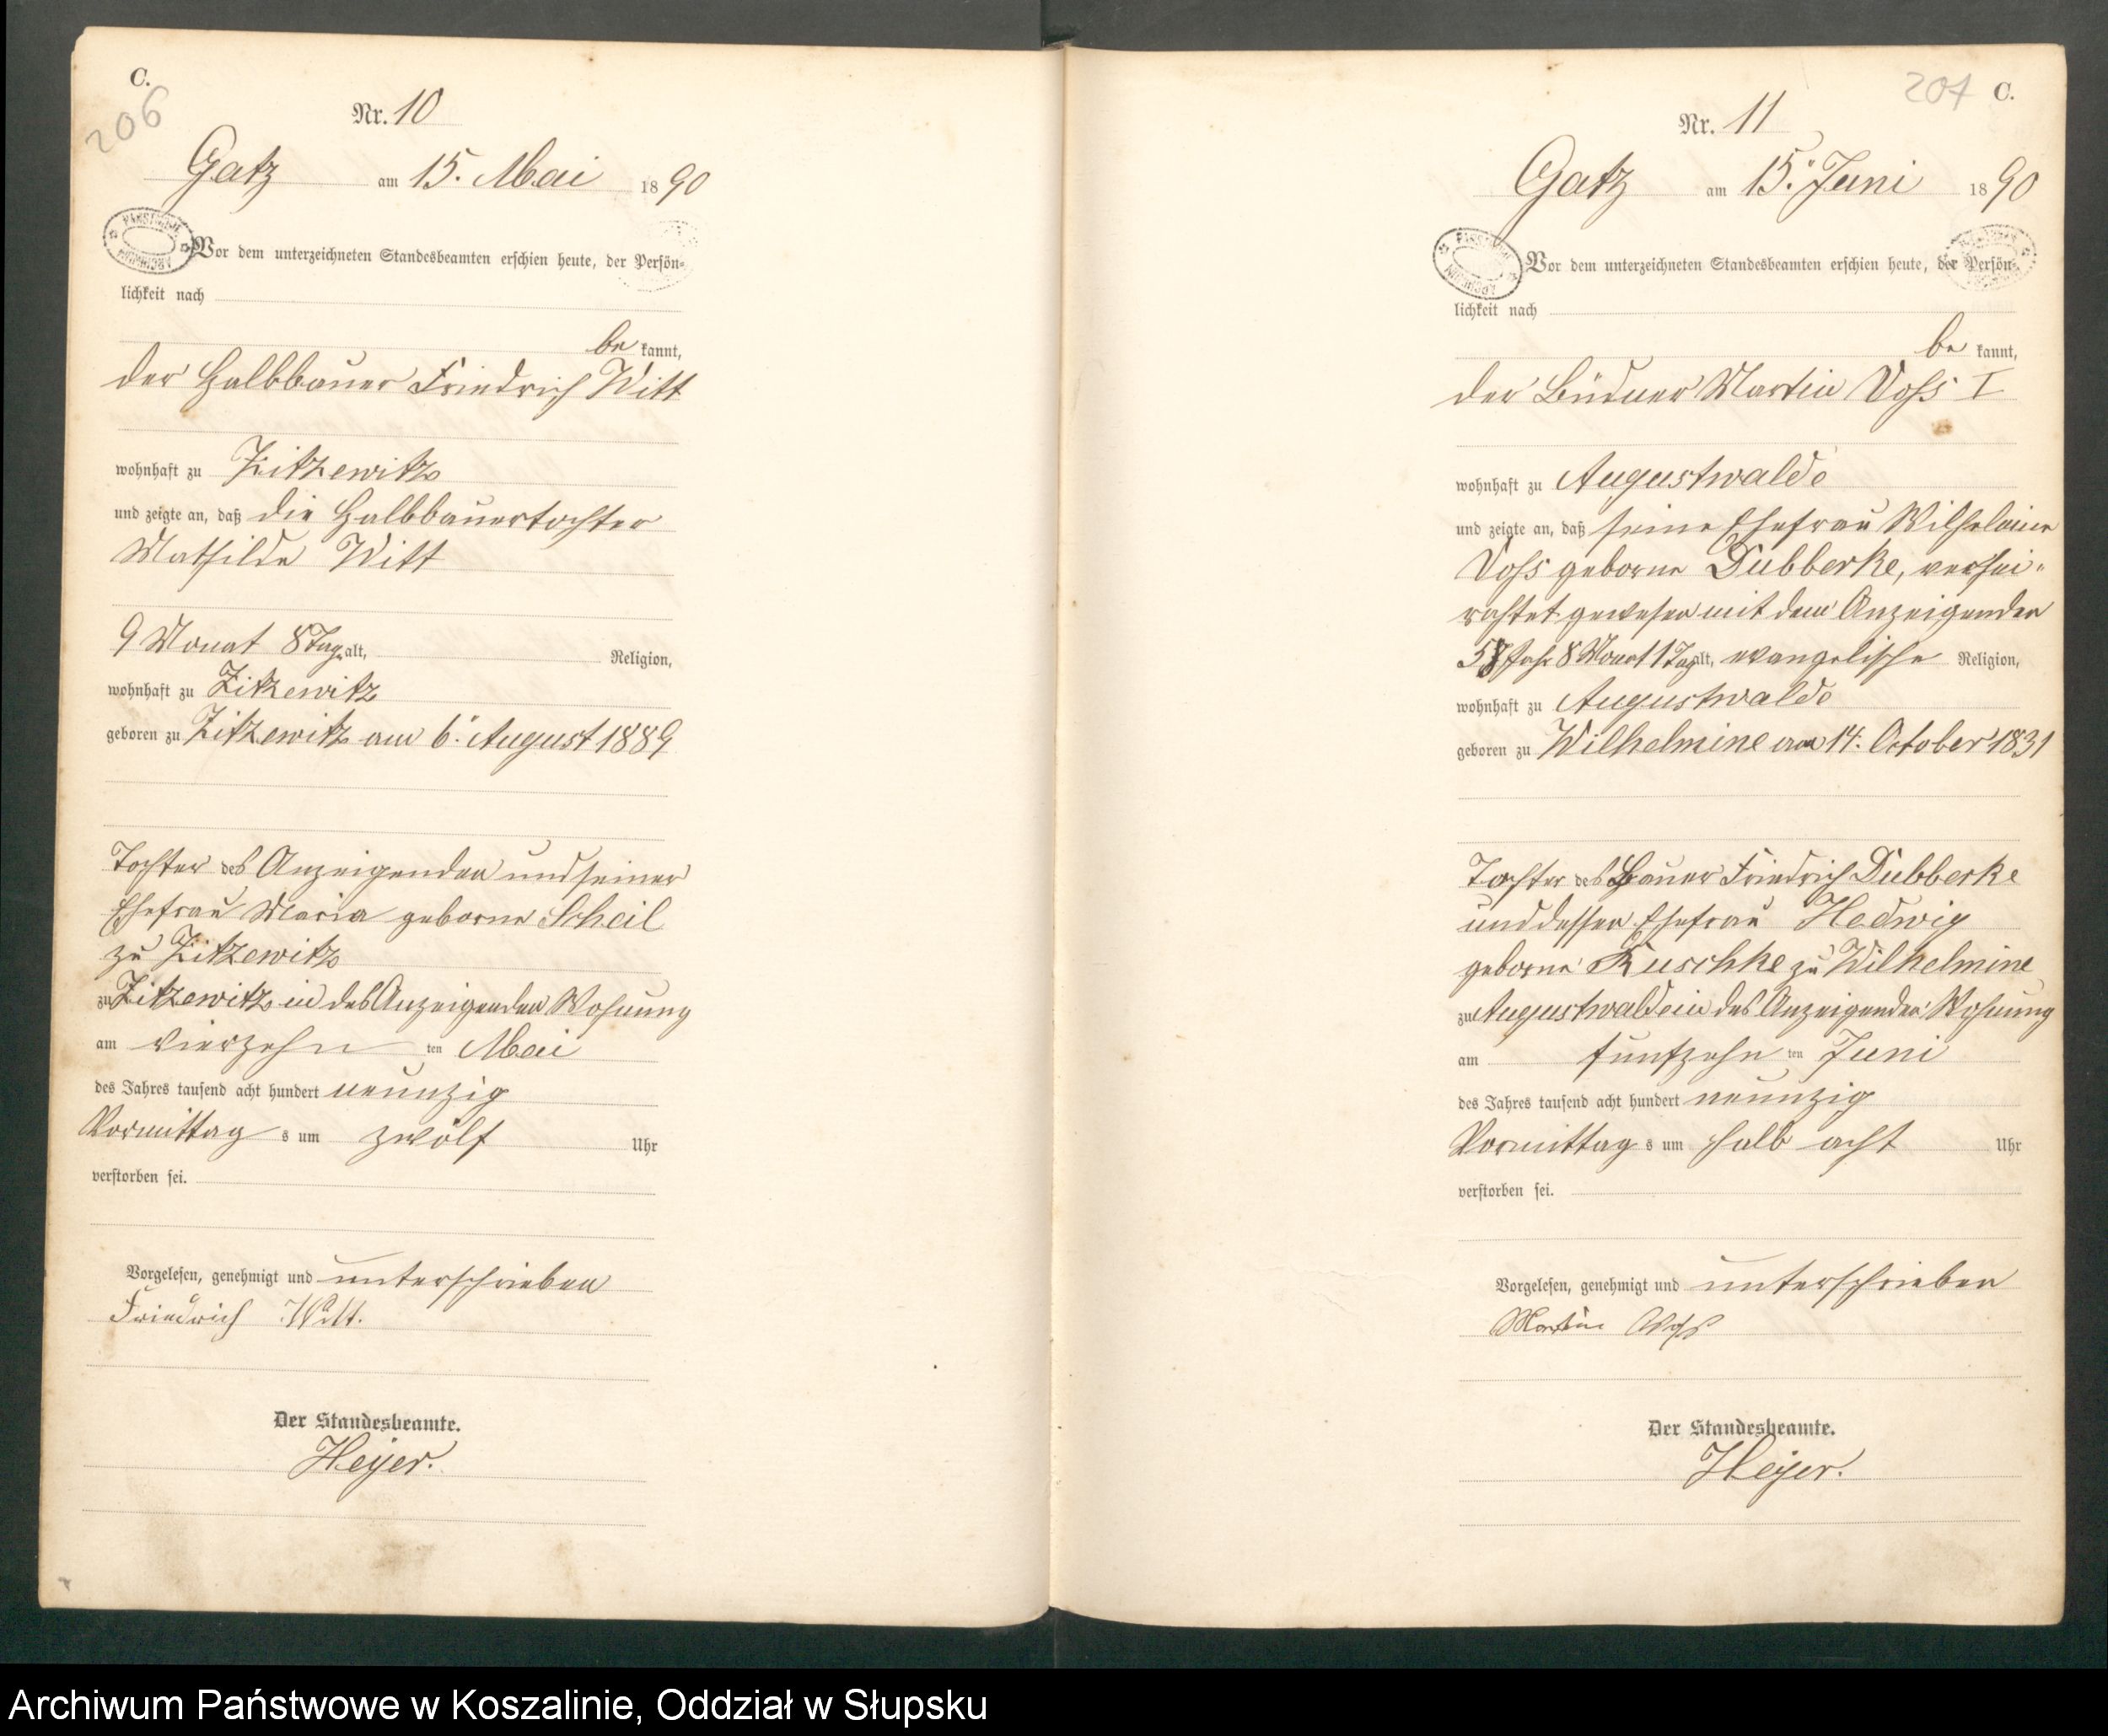 C.
206
Nr. 10
Gatz am 15. Mai 1890
Vor dem unterzeichneten Standesbeamten erschien heute, der Persön-
lichkeit nach
be kannt,
der Halbbauer Friedrich Witt
wohnhaft zu Zitzewitz
und zeigte an, daß die Halbbauertochter
Mathilde Witt
9 Monat 8 Tag alt, Religion,
wohnhaft zu Zitzewitz
geboren zu Zitzewitz am 6. August 1889
Tochter des Anzeigenden und seiner
Ehefrau Maria geborne Scheil
zu Zitzewitz
zu Zitzewitz in des Anzeigenden Wohnung
am vierzehn ten Mai
des Jahres tausend acht hundert neunzig
Vormittag s um zwölf Uhr
verstorben sei.
Vorgelesen, genehmigt und unterschrieben
Friedrich Witt.
Der Standesbeamte.
Heyer.
207 C.
Nr. 11
Gatz am 15. Juni 1890
Vor dem unterzeichneten Standesbeamten erschien heute, der Persön-
lichkeit nach
be kannt,
der Büdner Martin Voss I
wohnhaft zu Augustwalde
und zeigte an, daß seine Ehefrau Wilhelmine
Voss geborne Dubberke, verhei-
rathet gewesen mit dem Anzeigenden
58 Jahr 8 Monat 1 Tag alt, evangelische Religion,
wohnhaft zu Augustwalde
geboren zu Wilhelmine am 14. October 1831
Tochter des Bauer Friedrich Dubberke
und dessen Ehefrau Hedwig
geborne Kuschke zu Wilhelmine
zu Augustwalde in des Anzeigenden Wohnung
am funfzehn ten Juni
des Jahres tausend acht hundert neunzig
Vormittag s um halb acht Uhr
verstorben sei.
Vorgelesen, genehmigt und unterschrieben
Martin Voss
Der Standesbeamte.
Heyer.
Archiwum Państwowe w Koszalinie, Oddział w Słupsku